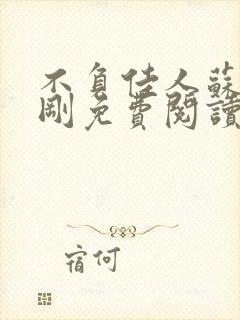 不負佳人蘇
剛免費閱讀
宿何